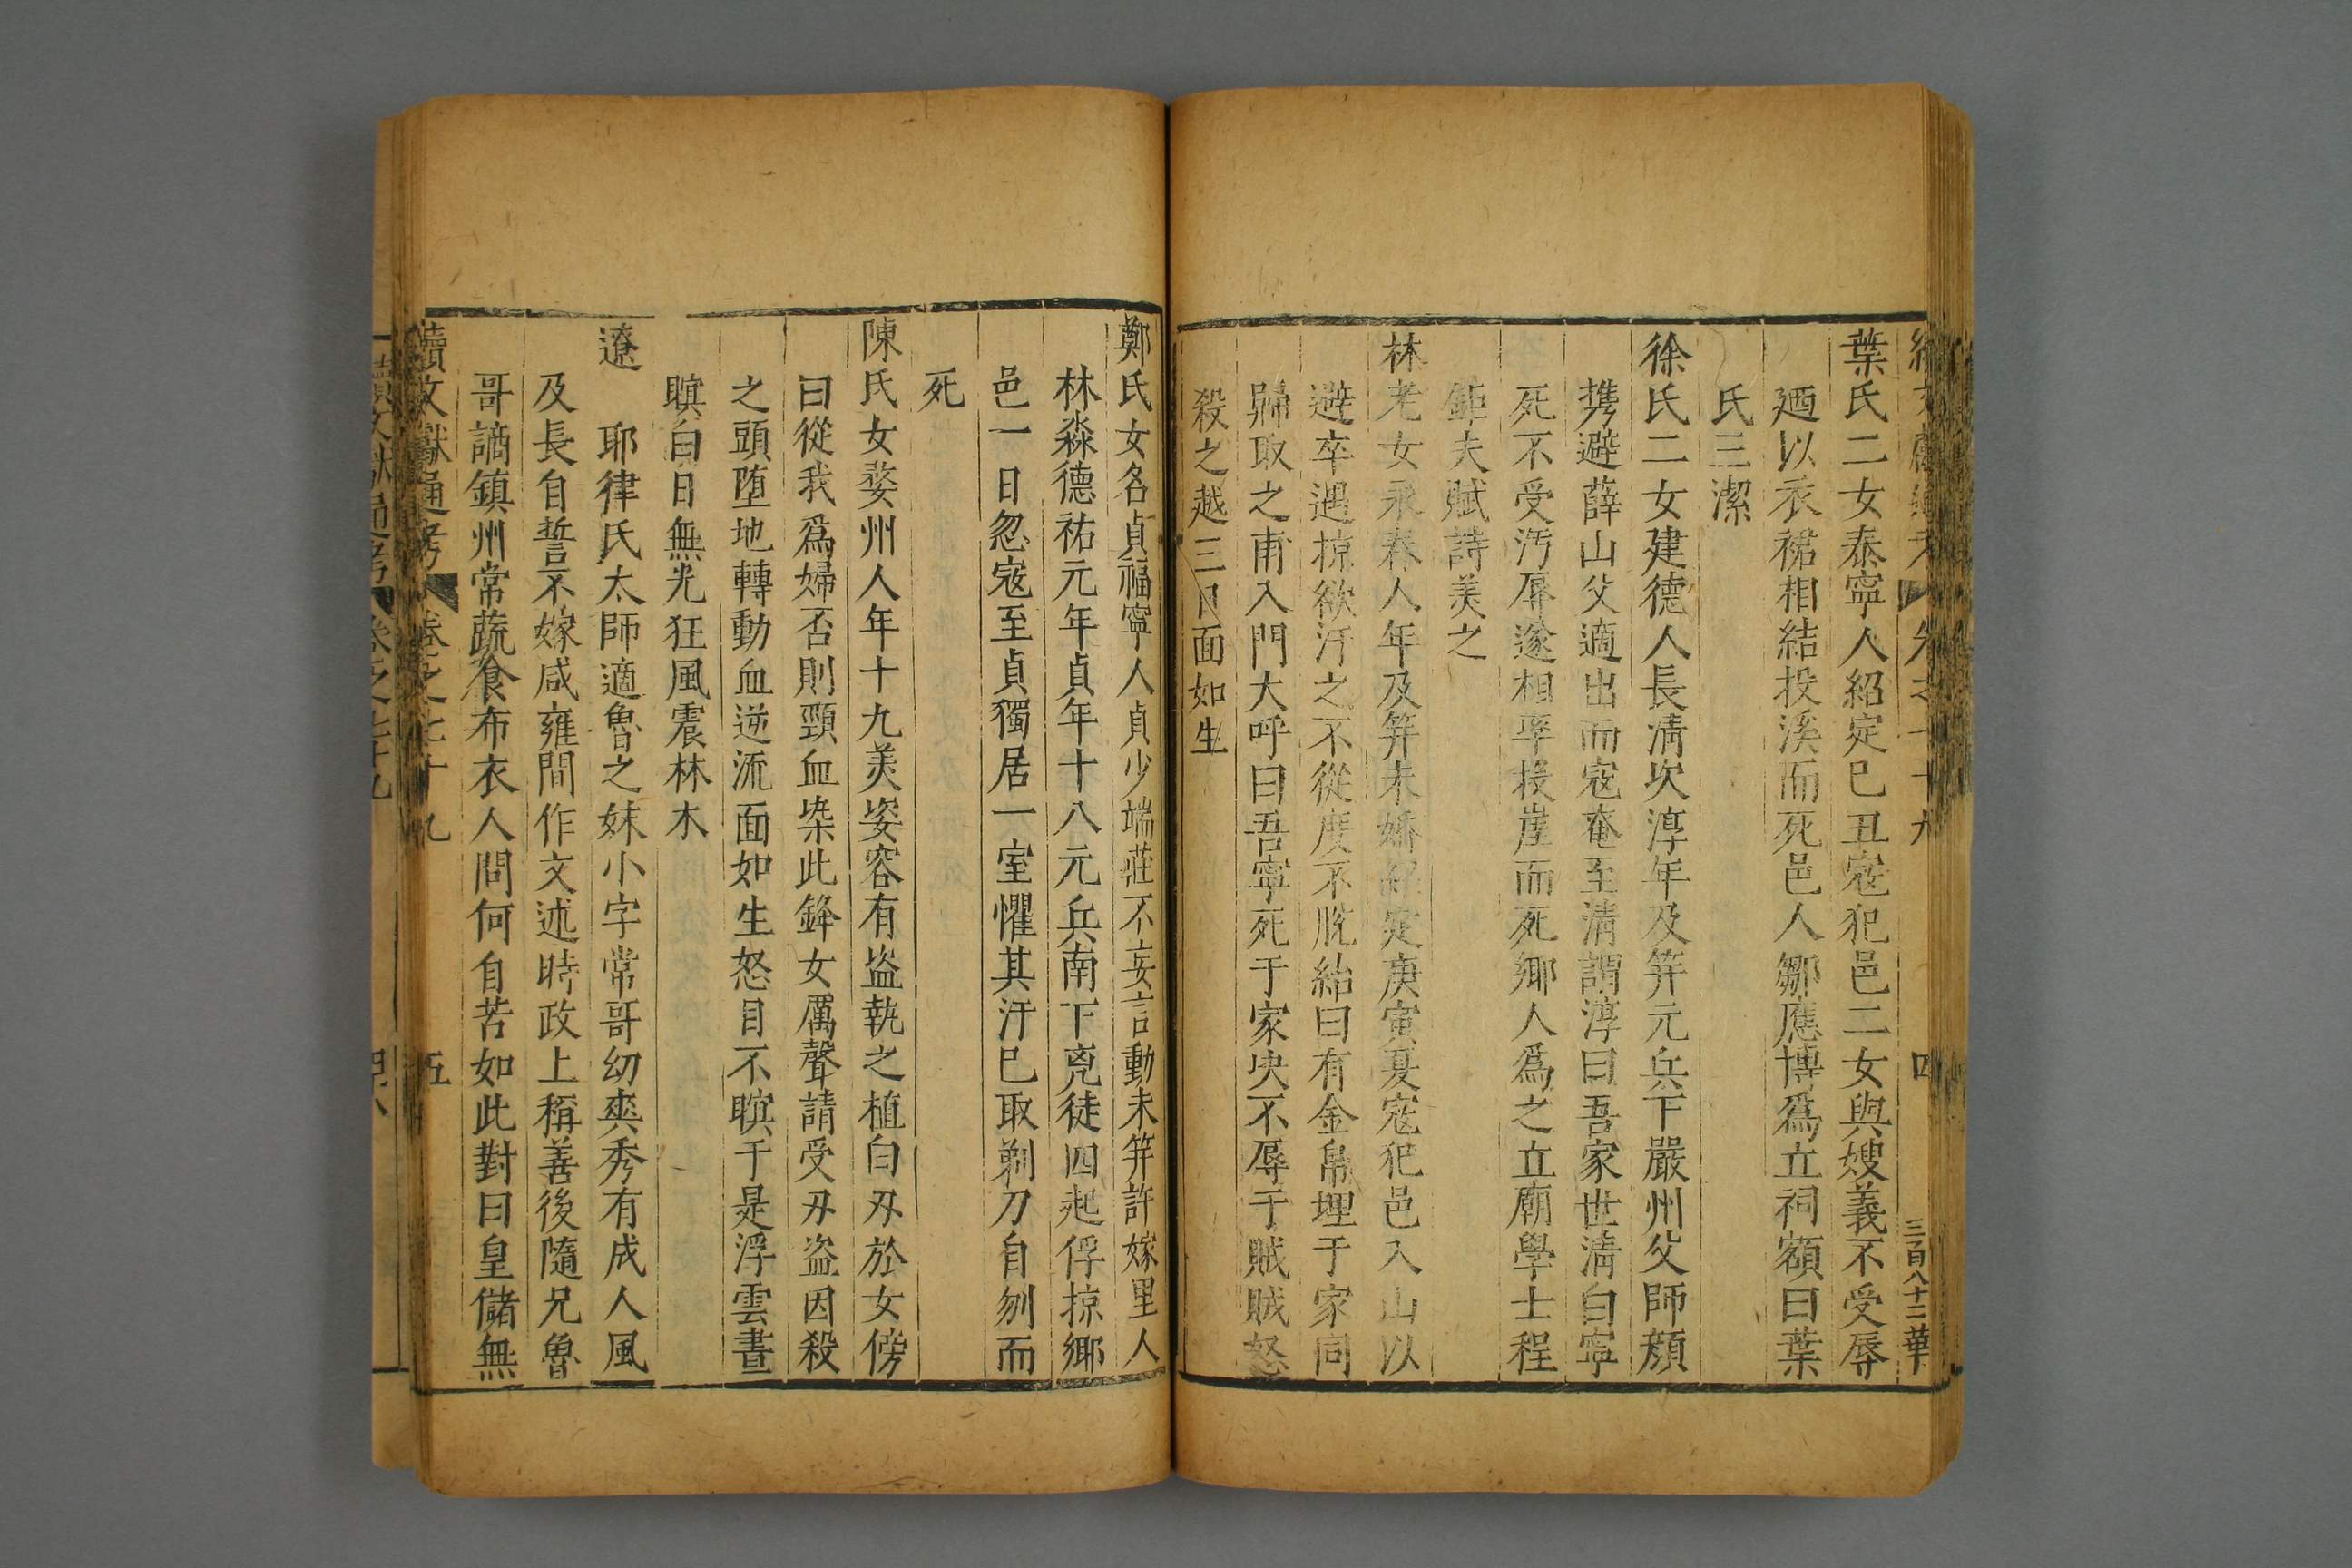 續文獻通考 卷之七十九 四 三百八十二 華
葉氏二女泰寧人紹定己丑寇犯邑二女與嫂義不受辱
廼以衣裙相結投溪而死邑人鄒應博爲立祠額曰葉
氏三潔
徐氏二女建德人長淸次淳年及笄元兵下嚴州父師顔
携避薛山父適出而寇奄至淸謂淳曰吾家世淸白寧
死不受汚辱遂相率投崖而死鄉人爲之立廟學士程
鉅夫賦詩美之
林老女永春人年及笄未婚紹定庚寅夏寇犯邑入山以
避卒遇掠欲汙之不從度不脫紿曰有金帛埋于家同
歸取之甫入門大呼曰吾寧死于家決不辱于賊賊怒
殺之越三日面如生
鄭氏女名貞福寧人貞少端莊不妄言動未笄許嫁里人
林淼德祐元年貞年十八元兵南下兇徒四起俘掠鄉
邑一日忽寇至貞獨居一室懼其汙已取剃刀自刎而
死
陳氏女婺州人年十九美姿容有盜執之植白刃於女傍
曰從我爲婦否則頸血染此鋒女厲聲請受刃盜因殺
之頭墮地轉動血逆流面如生怒目不瞑于是浮雲晝
瞑白日無光狂風震林木
遼 耶律氏太師適魯之妹小字常哥幼爽秀有成人風
及長自誓不嫁咸雍間作文述時政上稱善後隨兄魯
哥謫鎮州常蔬食布衣人問何自苦如此對曰皇儲無
續文獻通考 卷之七十九 五
續文獻通考 卷之七十九